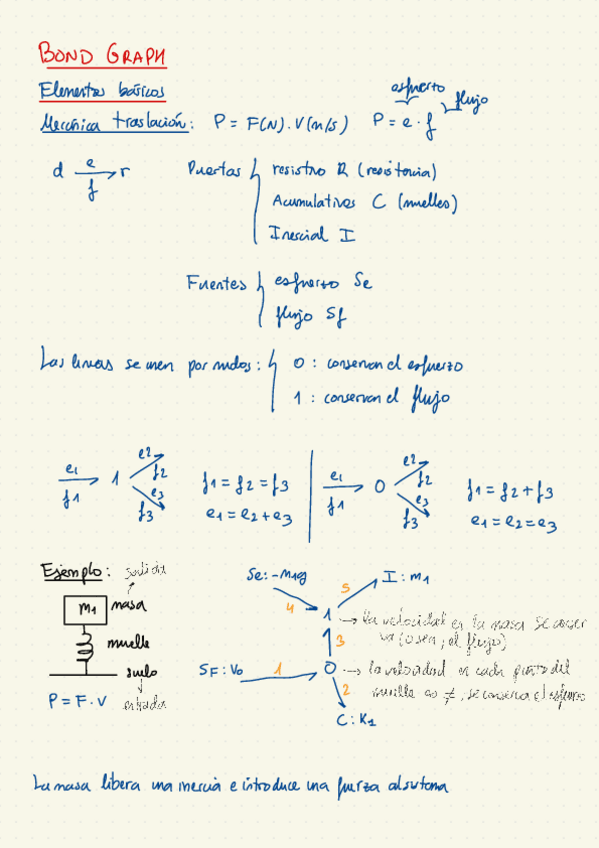 BOND GRAPH
Elementos básicos
Mecánica traslación: P = F(N) · V(m/s) P = e · f
esfuerzo
flujo
d e f r
Puertas resistivo R (resistencia)
Acumulativos C (muelles)
Inercial I
Fuentes esfuerzo Se
flujo Sf
Las lineas se unen por nudos: 0 : conservan el esfuerzo
1 : conservan el flujo
e1 f1 1 e2 f2 e3 f3 f1 = f2 = f3
e1 = e2 + e3
e1 f1 0 e2 f2 e3 f3 f1 = f2 + f3
e1 = e2 = e3
Ejemplo: salida
m1 masa
muelle
suelo
P = F · V entrada
Se: -m1g
I : m1
4 5
1 → la velocidad en la masa se conser
va (o sea, el flujo)
3
SF: V0 1 0 → la velocidad en cada punto del
muelle es ≠, se conserva el esfuerzo
2
C: K1
La masa libera una inercia e introduce una fuerza al sistema